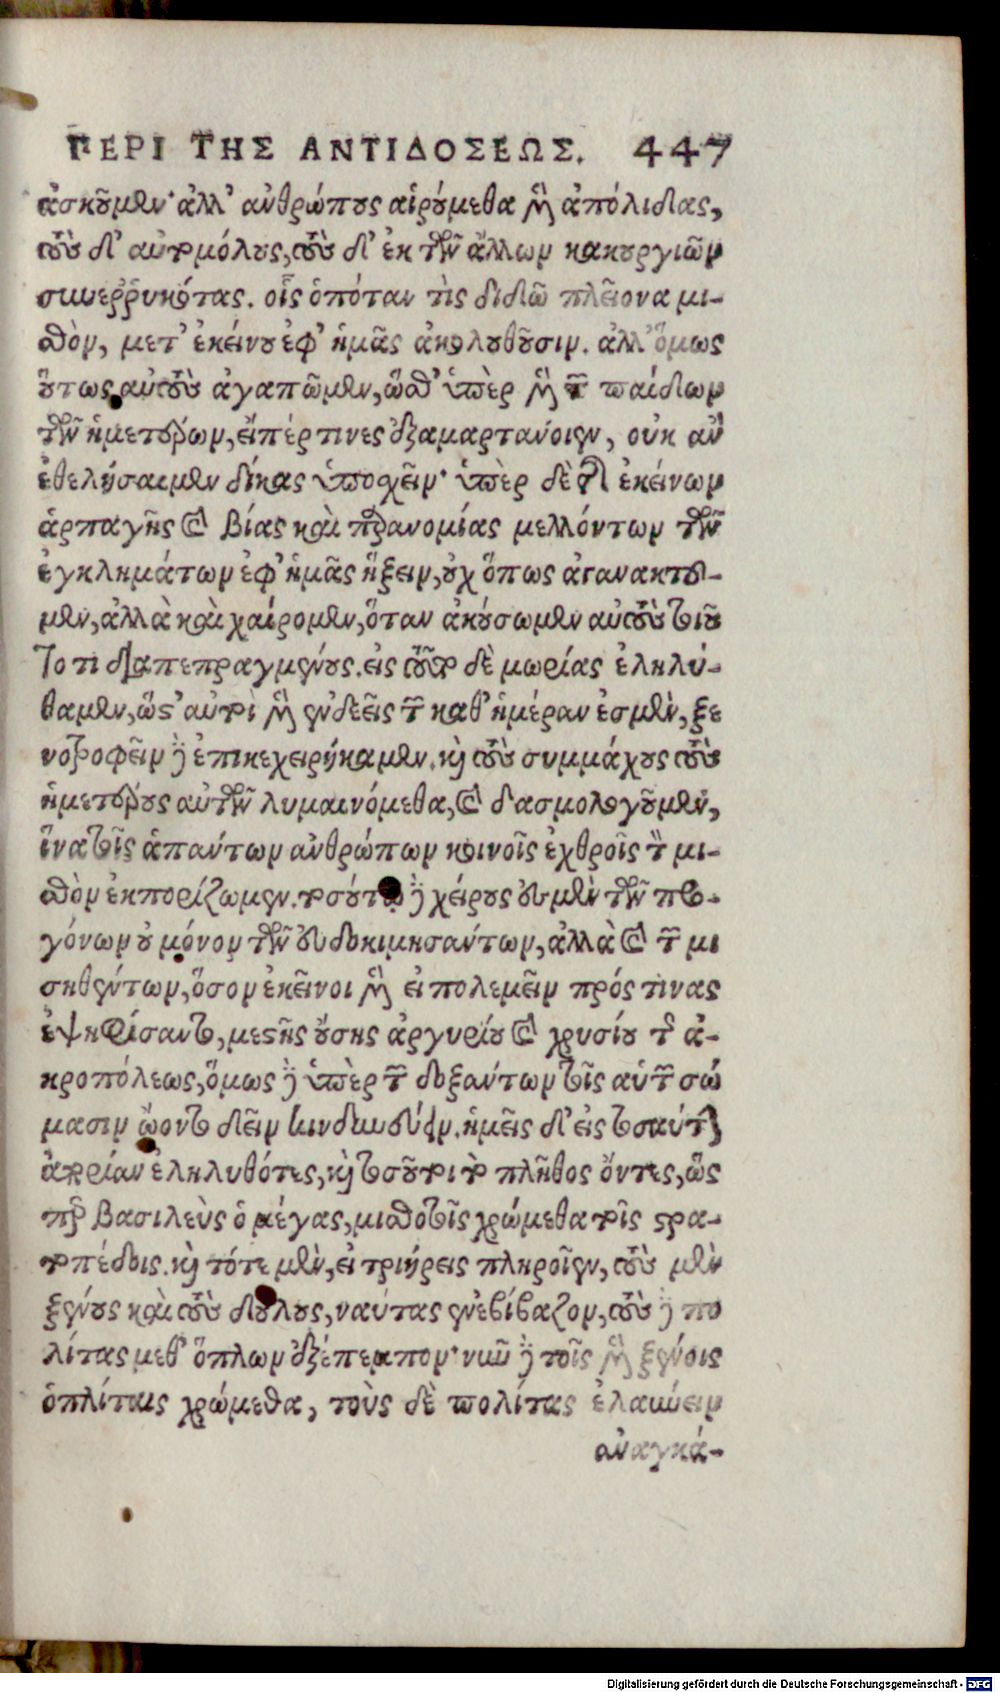 ΠΕΡΙ ΤΗΣ ΑΝΤΙΔΟΣΕΩΣ. 447
ἀσκοῦμεν· ἀλλ' ἀνθρώπους αἱρούμεθα μὲν ἀπόλιδας,
τοὺς δ' αὐτομόλους, τοὺς δ' ἐκ τῶν ἄλλων κακουργιῶν
συνερρυηκότας. οἷς ὁπόταν τὶς διδῶ πλείονα μι-
σθὸν, μετ' ἐκείνου ἐφ' ἡμᾶς ἀκολουθοῦσιν. ἀλλ' ὅμως
οὕτως αὐτοὺς ἀγαπῶμεν, ὥσθ' ὑπὲρ μὲν τῶν παίδων
τῶν ἡμετέρων, εἴπέρ τινες ἐξαμαρτάνοιεν, οὐκ ἂν
ἐθελήσαιμεν δίκας ὑποχεῖν· ὑπὲρ δὲ τῆς ἐκείνων
ἁρπαγῆς καὶ βίας καὶ παρανομίας μελλόντων τῶν
ἐγκλημάτων ἐφ' ἡμᾶς ἥξειν, οὐχ ὅπως ἀγανακτοῦ-
μεν, ἀλλὰ καὶ χαίρομεν, ὅταν ἀκούσωμεν αὐτοὺς τοιοῦ
τό τι διαπεπραγμένους. εἰς τοῦτο δὲ μωρίας ἐληλύ-
θαμεν, ὥστ' αὐτοὶ μὲν ἐνδεεῖς τῶν καθ' ἡμέραν ἐσμὲν, ξε
νοτροφεῖν δὲ ἐπικεχειρήκαμεν. καὶ τοὺς συμμάχους τοὺς
ἡμετέρους αὐτῶν λυμαινόμεθα, καὶ δασμολογοῦμεν,
ἵνα τοῖς ἁπάντων ἀνθρώπων κοινοῖς ἐχθροῖς τὸν μι-
σθὸν ἐκπορίζωμεν. τοσούτῳ δὲ χείρους ἐσμὲν τῶν προ-
γόνων οὐ μόνον τῶν εὐδοκιμησάντων, ἀλλὰ καὶ τῶν μι
σηθέντων, ὅσον ἐκεῖνοι μὲν εἰ πολεμεῖν πρός τινας
ἐψηφίσαντο, μεστῆς οὔσης ἀργυρίου καὶ χρυσίου τῆς ἀ-
κροπόλεως, ὅμως δὲ ὑπὲρ τῶν δοξάντων τοῖς αὑτῶν σώ
μασιν ᾤοντο δεῖν κινδυνεύειν. ἡμεῖς δ' εἰς τοσαύτην
ἀπορίαν ἐληλυθότες, καὶ τοσοῦτοι τὸ πλῆθος ὄντες, ὥς
περ βασιλεὺς ὁ μέγας, μισθοτοῖς χρώμεθα τοῖς στρα-
τοπέδοις. καὶ τότε μὲν, εἰ τριήρεις πληροῖεν, τοὺς μὲν
ξένους καὶ τοὺς δούλους, ναύτας ἐνεβίβαζον, τοὺς δὲ πο
λίτας μεθ' ὅπλων ἐξέπεμπον· νῦν δὲ τοῖς μὲν ξένοις
ὁπλίταις χρώμεθα, τοὺς δὲ πολίτας ἐλαύνειν
ἀναγκά-
Digitalisierung gefördert durch die Deutsche Forschungsgemeinschaft - DFG